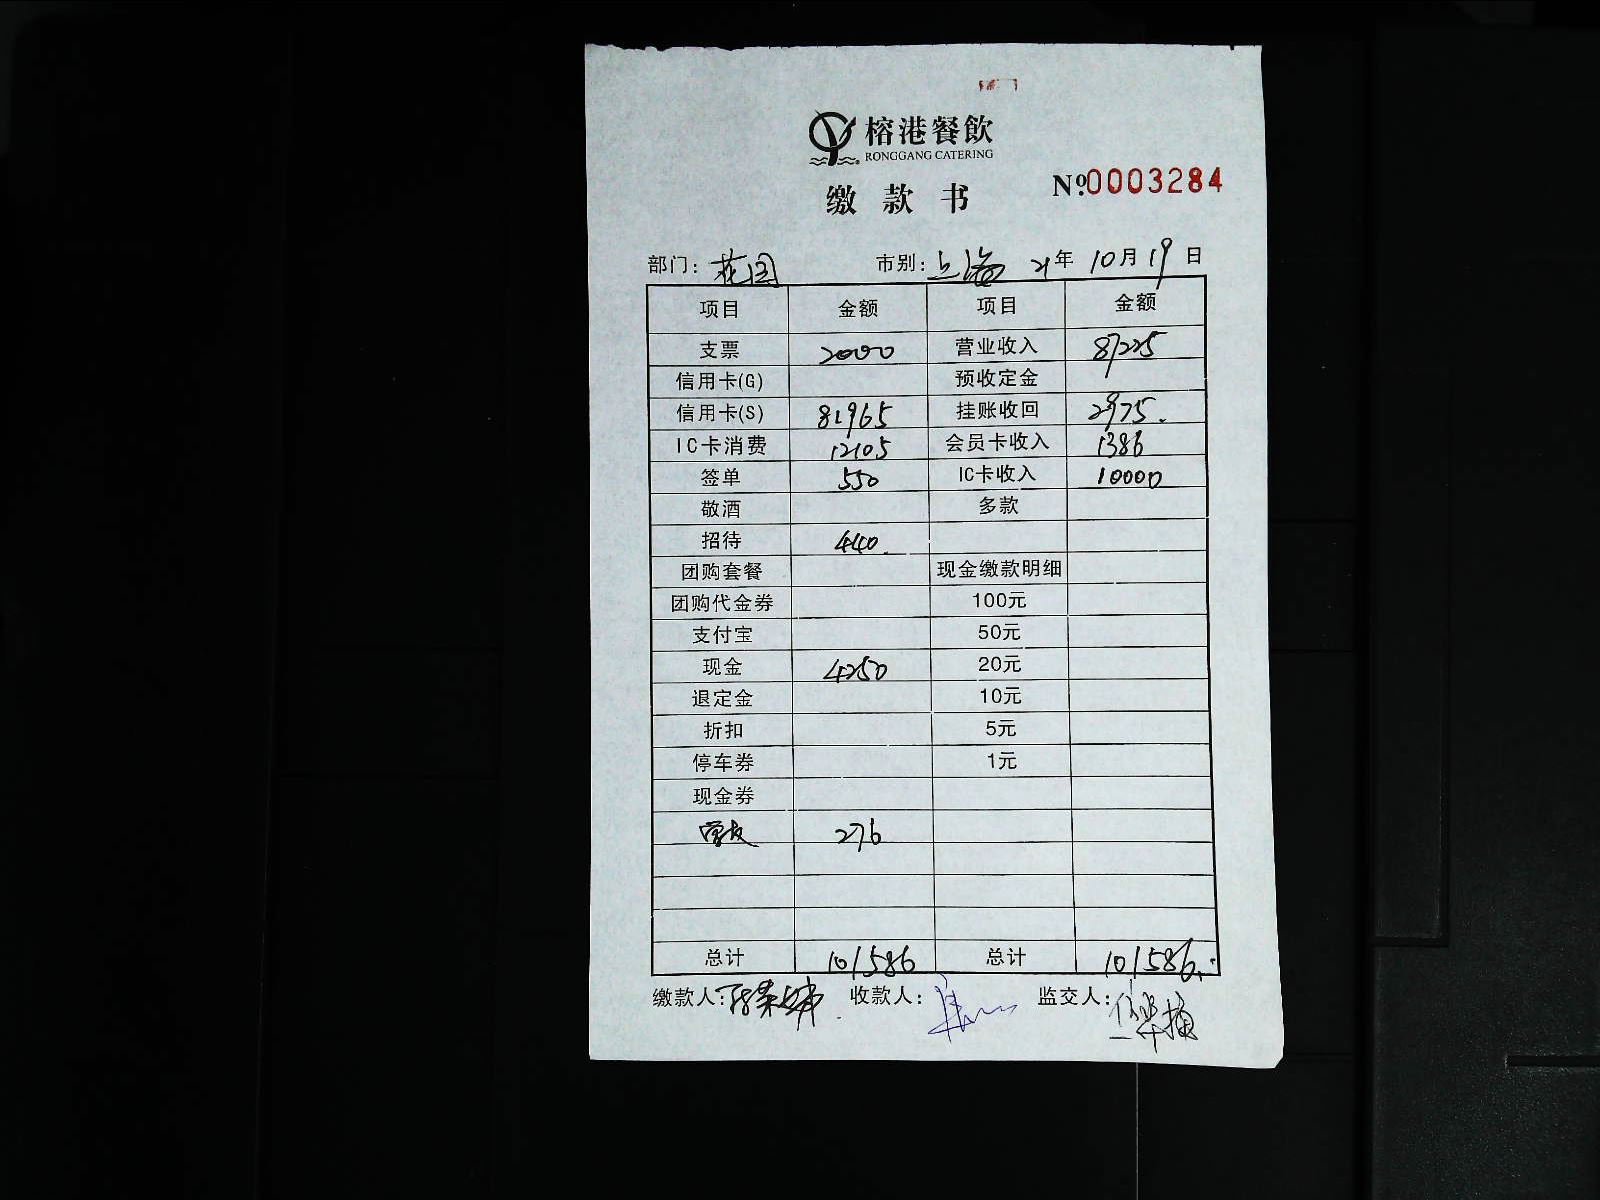 榕港餐飲
RONGGANG CATERING
缴款书
№0003284
部门：花园 市别：上海 21年 10月19日
项目 金额 项目 金额
支票 2000 营业收入 87225
信用卡(G) 预收定金
信用卡(S) 81965 挂账收回 2975.
IC卡消费 12105 会员卡收入 1386
签单 550 IC卡收入 10000
敬酒 多款
招待 440.
团购套餐 现金缴款明细
团购代金券 100元
支付宝 50元
现金 4250 20元
退定金 10元
折扣 5元
停车券 1元
现金券
276
总计 101586 总计 101586.
缴款人： 收款人： 监交人：